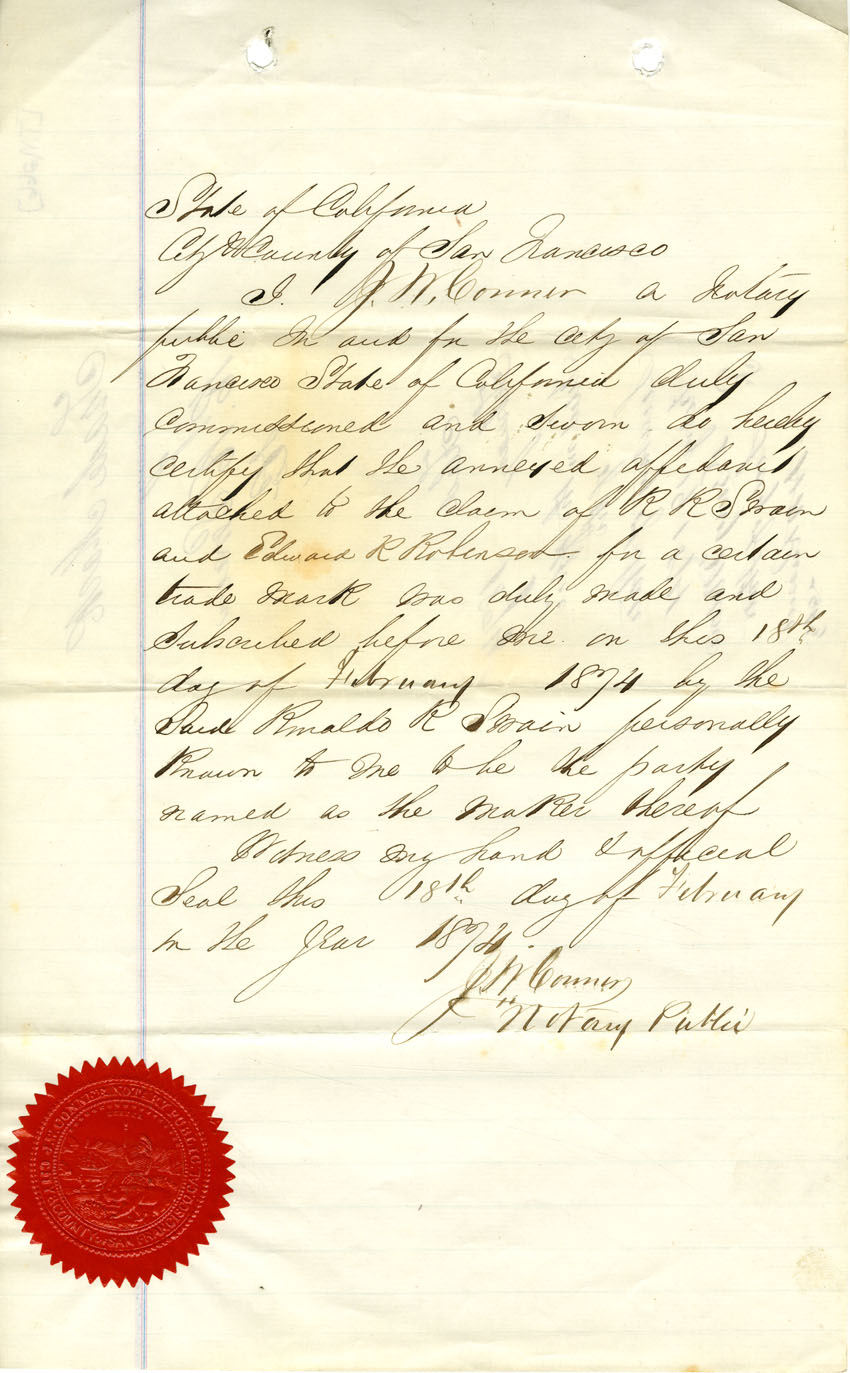 State of California
City & County of San Francisco
I. J. W. Connor a Notary
public in and for the city of San
Francisco State of California duly
commissioned and sworn do hereby
certify that the annexed affidavit
attached to the claim of R R Swain
and Edward R Robinson for a certain
trade mark was duly made and
subscribed before me on this 18th
day of February 1874 by the
Said Rinaldo R Swain personally
Known to me to be the party
named as the maker thereof
Witness my hand & official
Seal this 18th day of February
in the Year 1874.
J W Connor
Notary Public